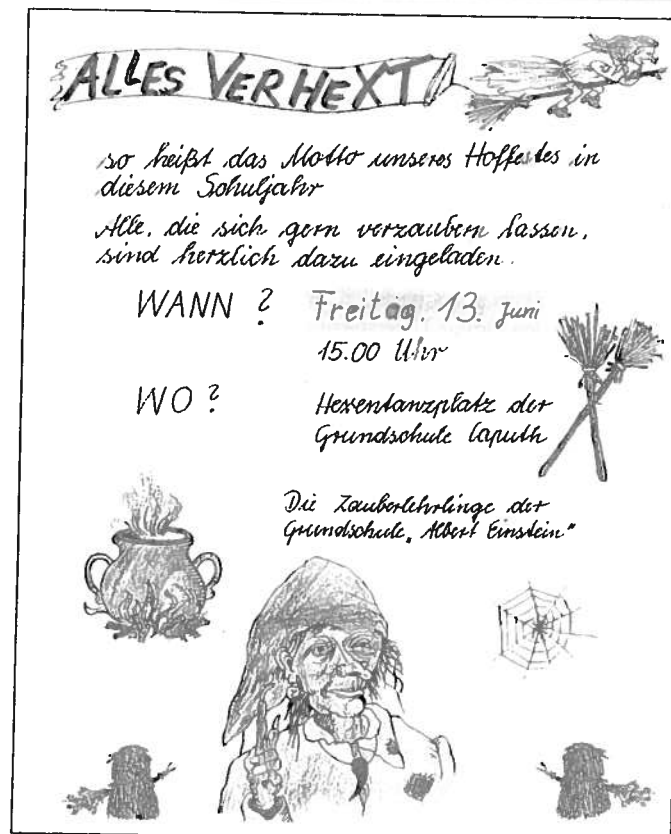 ALLES VERHEXT
so heißt das Motto unseres Hoffestes in
diesem Schuljahr
Alle, die sich gern verzaubern lassen,
sind herzlich dazu eingeladen.
WANN ? Freitag, 13. Juni
15.00 Uhr
WO ? Hexentanzplatz der
Grundschule Caputh
Die Zauberlehrlinge der
Grundschule „Albert Einstein"